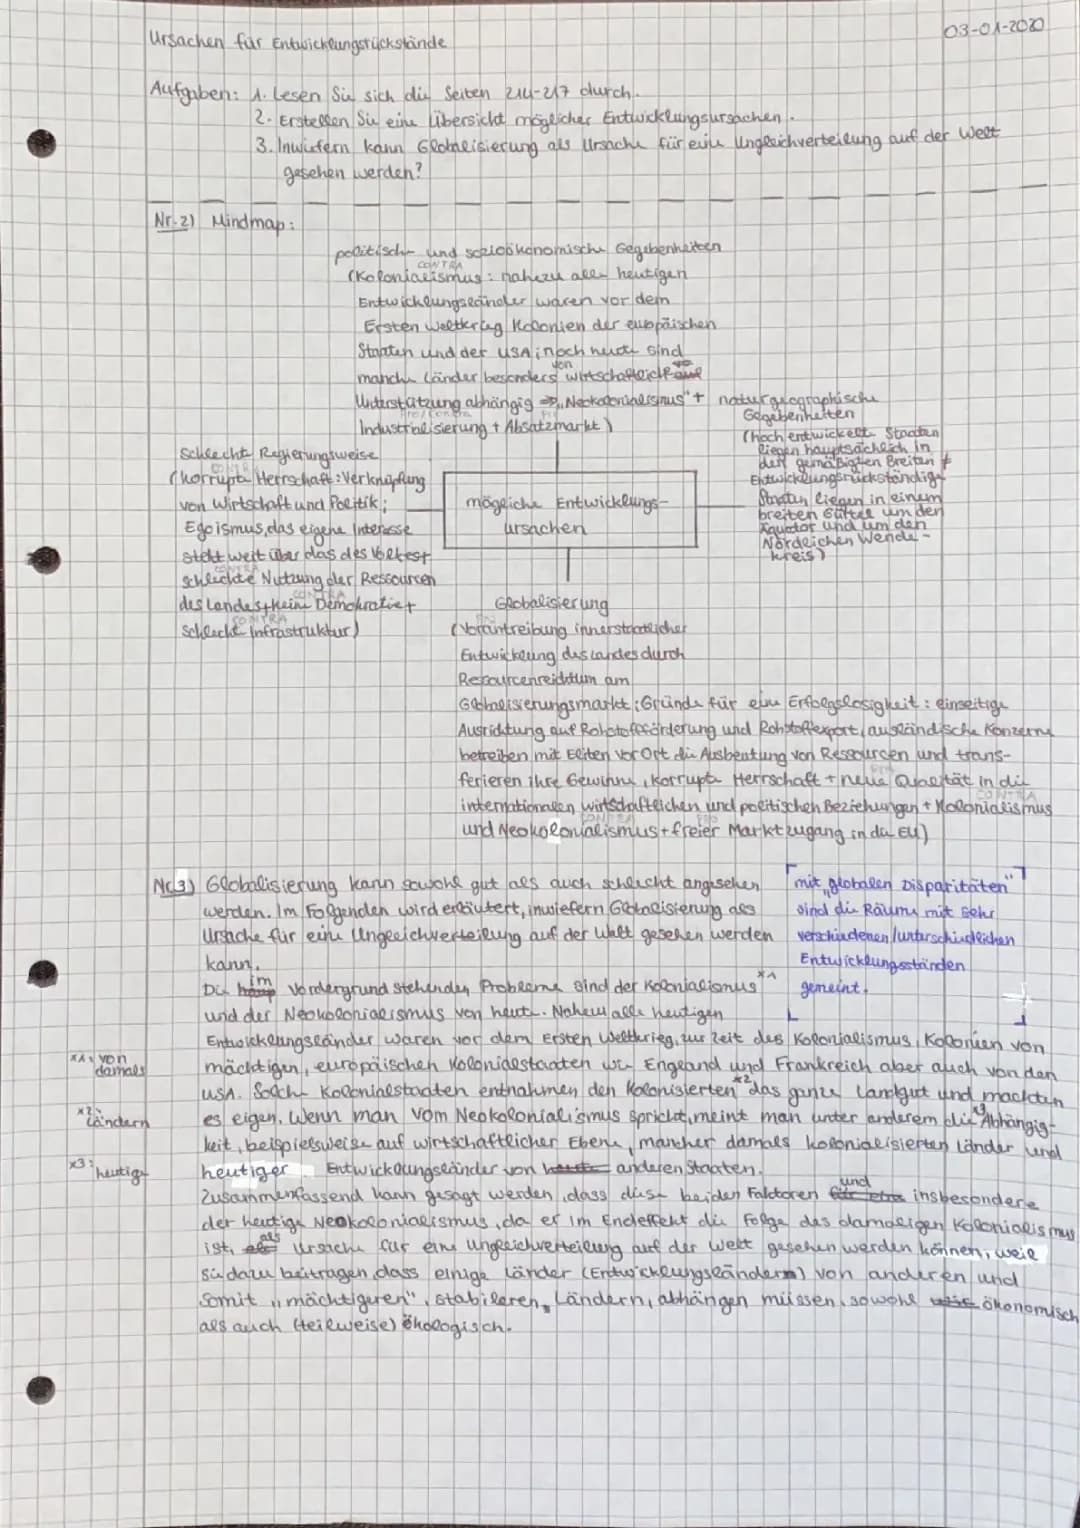 03-01-2020
Ursachen für Entwicklungsrückstände
Aufgaben: 1. Lesen Sie sich die Seiten 214-217 durch.
2. Erstellen Sie eine Übersicht möglicher Entwicklungsursachen.
3. Inwiefern kann Globalisierung als Ursache für eine Ungleichverteilung auf der Welt
gesehen werden?
Nr.2) Mindmap:
politische und sozioökonomische Gegebenheiten
CONTRA
(Kolonialismus: nahezu alle heutigen
Entwicklungsländer waren vor dem
Ersten Weltkrieg Kolonien der europäischen
Staaten und der USA; noch heute sind
manche Länder besonders von wirtschaftlich
Unterstützung abhängig => "Neokolonialismus" +
Pro/Contra
Industrialisierung + Absatzmarkt)
naturgeographische
Gegebenheiten
(hoch entwickelte Staaten
liegen hauptsächlich in
den gemäßigten Breiten +
Entwicklungsrückständige
Staaten liegen in einem
breiten Gürtel um den
Äquator und um den
Nördlichen Wende-
kreis)
Schlechte Regierungsweise
CONTRA
(korrupte Herrschaft: Verknüpfung
von Wirtschaft und Politik;
Egoismus, das eigene Interesse
steht weit über das des Volkes+
CONTRA
schlechte Nutzung der Ressourcen
CONTRA
des Landes+keine Demokratie+
CONTRA
schlechte Infrastruktur)
mögliche Entwicklungs-
ursachen
Globalisierung
(Vorantreibung innerstaatlicher
Entwicklung des Landes durch
Ressourcenreichtum am
Globalisierungsmarkt; Gründe für eine Erfolgslosigkeit: einseitige
Ausrichtung auf Rohstoffförderung und Rohstoffexport, ausländische Konzerne
betreiben mit Eliten vor Ort die Ausbeutung von Ressourcen und trans-
ferieren ihre Gewinne, korrupte Herrschaft + neue Qualität in die
CONTRA
internationalen wirtschaftlichen und politischen Beziehungen + Kolonialismus
CONTRA PRO
und Neokolonialismus + freier Marktzugang in da EU)
Nr.3) Globalisierung kann sowohl gut als auch schlecht angesehen
werden. Im Folgenden wird erläutert, inwiefern Globalisierung als
Ursache für eine Ungleichverteilung auf der Welt gesehen werden
kann.
mit "globalen Disparitäten"
sind die Räume mit sehr
verschiedenen/unterschiedlichen
Entwicklungsständen
gemeint.
Die im Vordergrund stehenden Probleme sind der Kolonialismus *1
und der Neokolonialismus von heute. Nahezu alle heutigen
Entwicklungsländer waren vor dem Ersten Weltkrieg, zur Zeit des Kolonialismus, Kolonien von
*1: von
damals
mächtigen, europäischen Kolonialstaaten wie England und Frankreich aber auch von den
USA. Solche Kolonialstaaten entnahmen den Kolonisierten *2 das ganze Landgut und machten
*2:
Ländern
es eigen. Wenn man vom Neokolonialismus spricht, meint man unter anderem die *3 Abhängig-
keit, beispielsweise auf wirtschaftlicher Ebene, mancher damals kolonialisierten Länder und
*3:
heutige
heutiger Entwicklungsländer von anderen Staaten.
Zusammenfassend kann gesagt werden, dass diese beiden Faktoren und insbesondere
der heutige Neokolonialismus, da er im Endeffekt die Folge des damaligen Kolonialismus
ist, als Ursache für eine Ungleichverteilung auf der Welt gesehen werden können, weil
sie dazu beitragen, dass einige Länder (Entwicklungsländer) von anderen und
somit "mächtigeren", stabileren, Ländern, abhängen müssen, sowohl ökonomisch
als auch (teilweise) ökologisch.